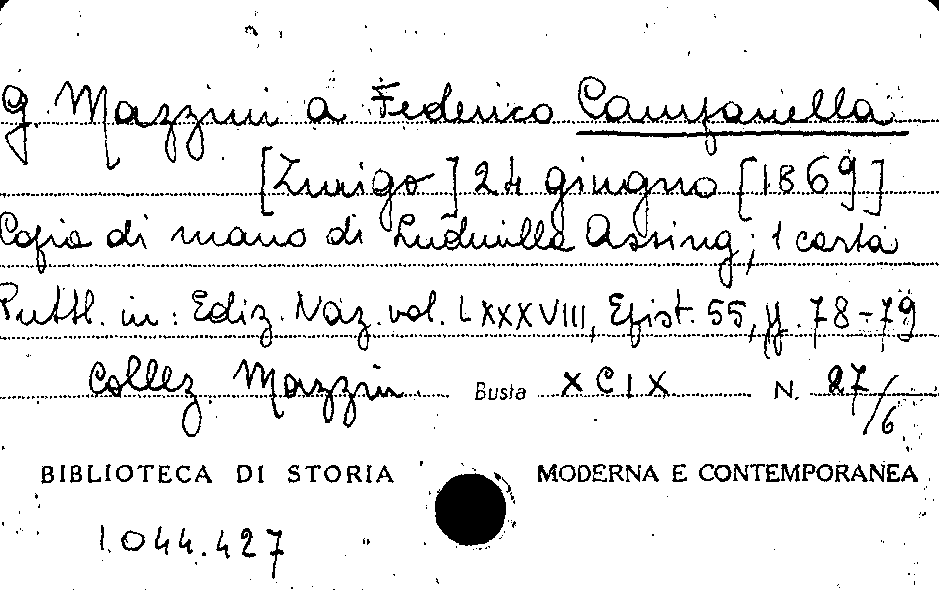 G. Mazzini a Federico Campanella
[Zurigo] 24 giugno [1869]
Copia di mano di Ludmilla Assing; 1 carta
Pubbl. in: Ediz. Naz. vol. LXXXVIII, Epist. 55, pp. 78-79
Collez. Mazzini Busta XCIX N. 27/6
BIBLIOTECA DI STORIA MODERNA E CONTEMPORANEA
1.044.427